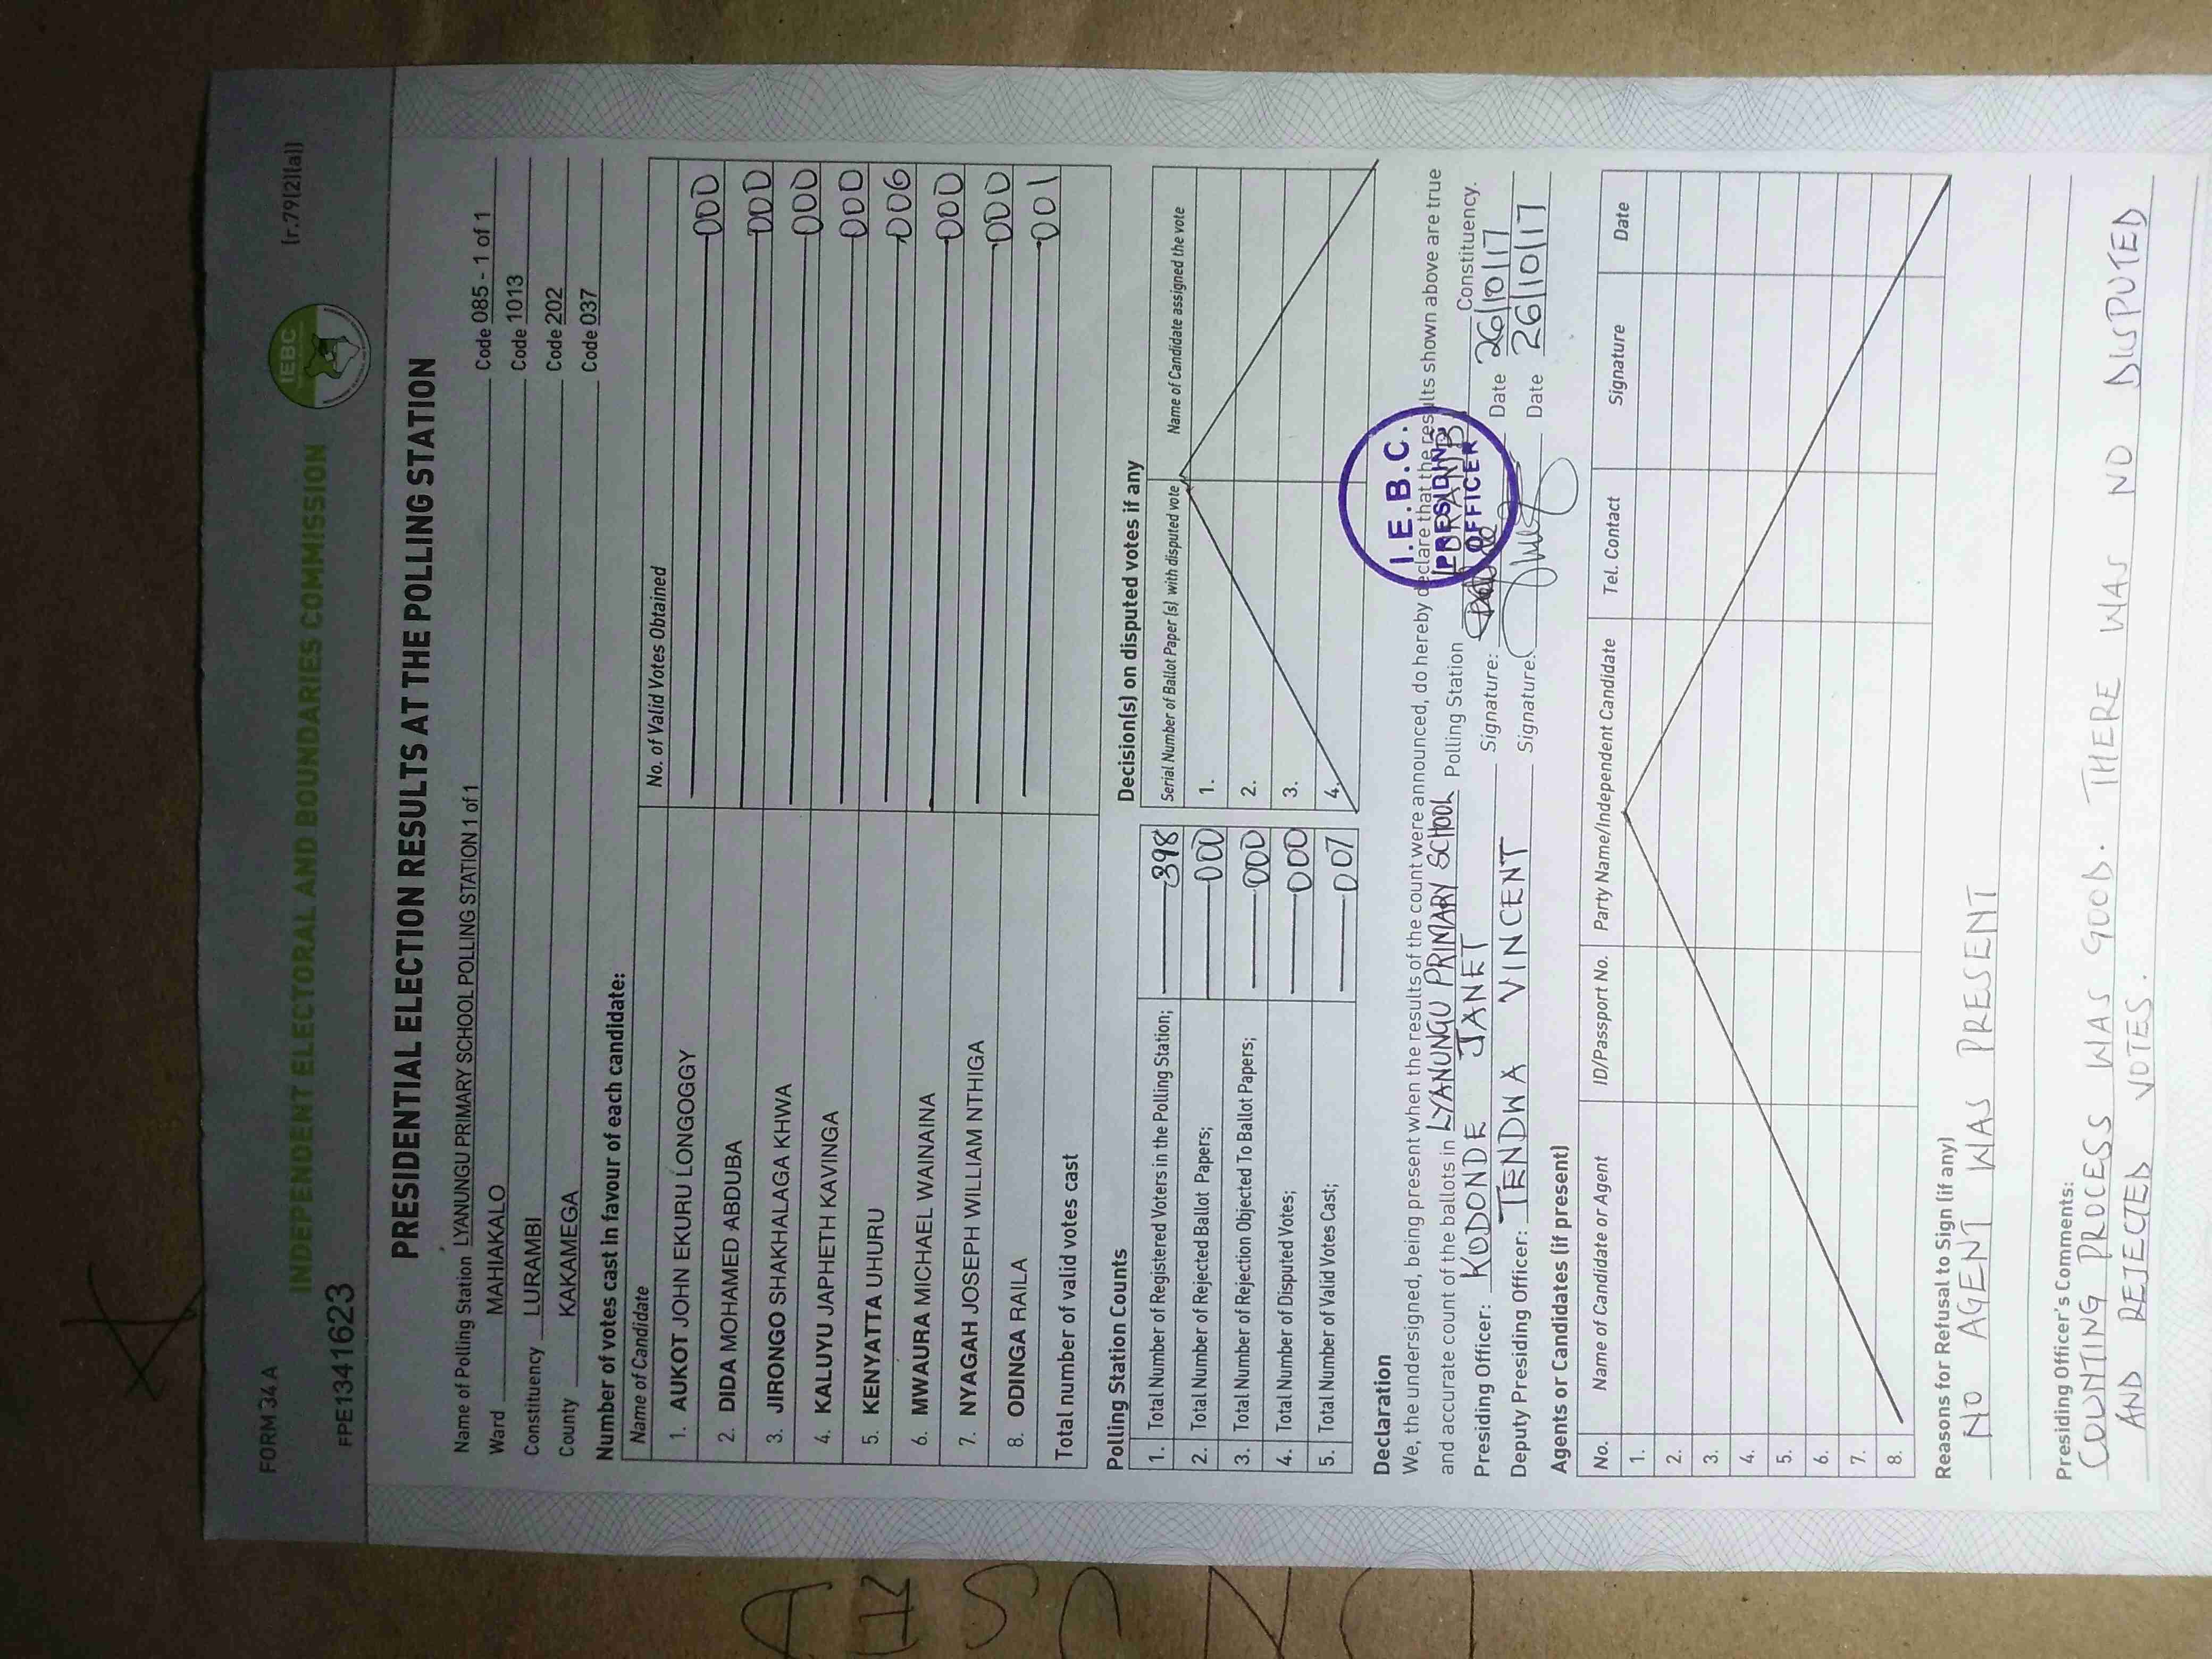 FORM 34 A
(r.79(2)(a))
IEBC
INDEPENDENT ELECTORAL AND BOUNDARIES COMMISSION
FPE1341623
PRESIDENTIAL ELECTION RESULTS AT THE POLLING STATION
Name of Polling Station LYANUNGU PRIMARY SCHOOL POLLING STATION 1 of 1 Code 085 - 1 of 1
Ward MAHIAKALO Code 1013
Constituency LURAMBI Code 202
County KAKAMEGA Code 037
Number of votes cast in favour of each candidate:
Name of Candidate No. of Valid Votes Obtained
1. AUKOT JOHN EKURU LONGOGGY 000
2. DIDA MOHAMED ABDUBA 000
3. JIRONGO SHAKHALAGA KHWA 000
4. KALUYU JAPHETH KAVINGA 000
5. KENYATTA UHURU 006
6. MWAURA MICHAEL WAINAINA 000
7. NYAGAH JOSEPH WILLIAM NTHIGA 000
8. ODINGA RAILA 001
Total number of valid votes cast
Polling Station Counts
1. Total Number of Registered Voters in the Polling Station; 398
2. Total Number of Rejected Ballot Papers; 000
3. Total Number of Rejection Objected To Ballot Papers; 000
4. Total Number of Disputed Votes; 000
5. Total Number of Valid Votes Cast; 007
Decision(s) on disputed votes if any
Serial Number of Ballot Paper (s) with disputed vote Name of Candidate assigned the vote
1.
2.
3.
4.
Declaration
We, the undersigned, being present when the results of the count were announced, do hereby declare that the results shown above are true
and accurate count of the ballots in LYANUNGU PRIMARY SCHOOL Polling Station LURAMBI Constituency.
Presiding Officer: KODONDE JANET Signature: Date 26/10/17
Deputy Presiding Officer: TENDWA VINCENT Signature: Date 26/10/17
I.E.B.C.
PRESIDING
OFFICER
Agents or Candidates (if present)
No. Name of Candidate or Agent ID/Passport No. Party Name/Independent Candidate Tel. Contact Signature Date
1.
2.
3.
4.
5.
6.
7.
8.
Reasons for Refusal to Sign (if any)
NO AGENT WAS PRESENT
Presiding Officer's Comments:
COUNTING PROCESS WAS GOOD. THERE WAS NO DISPUTED
AND REJECTED VOTES.